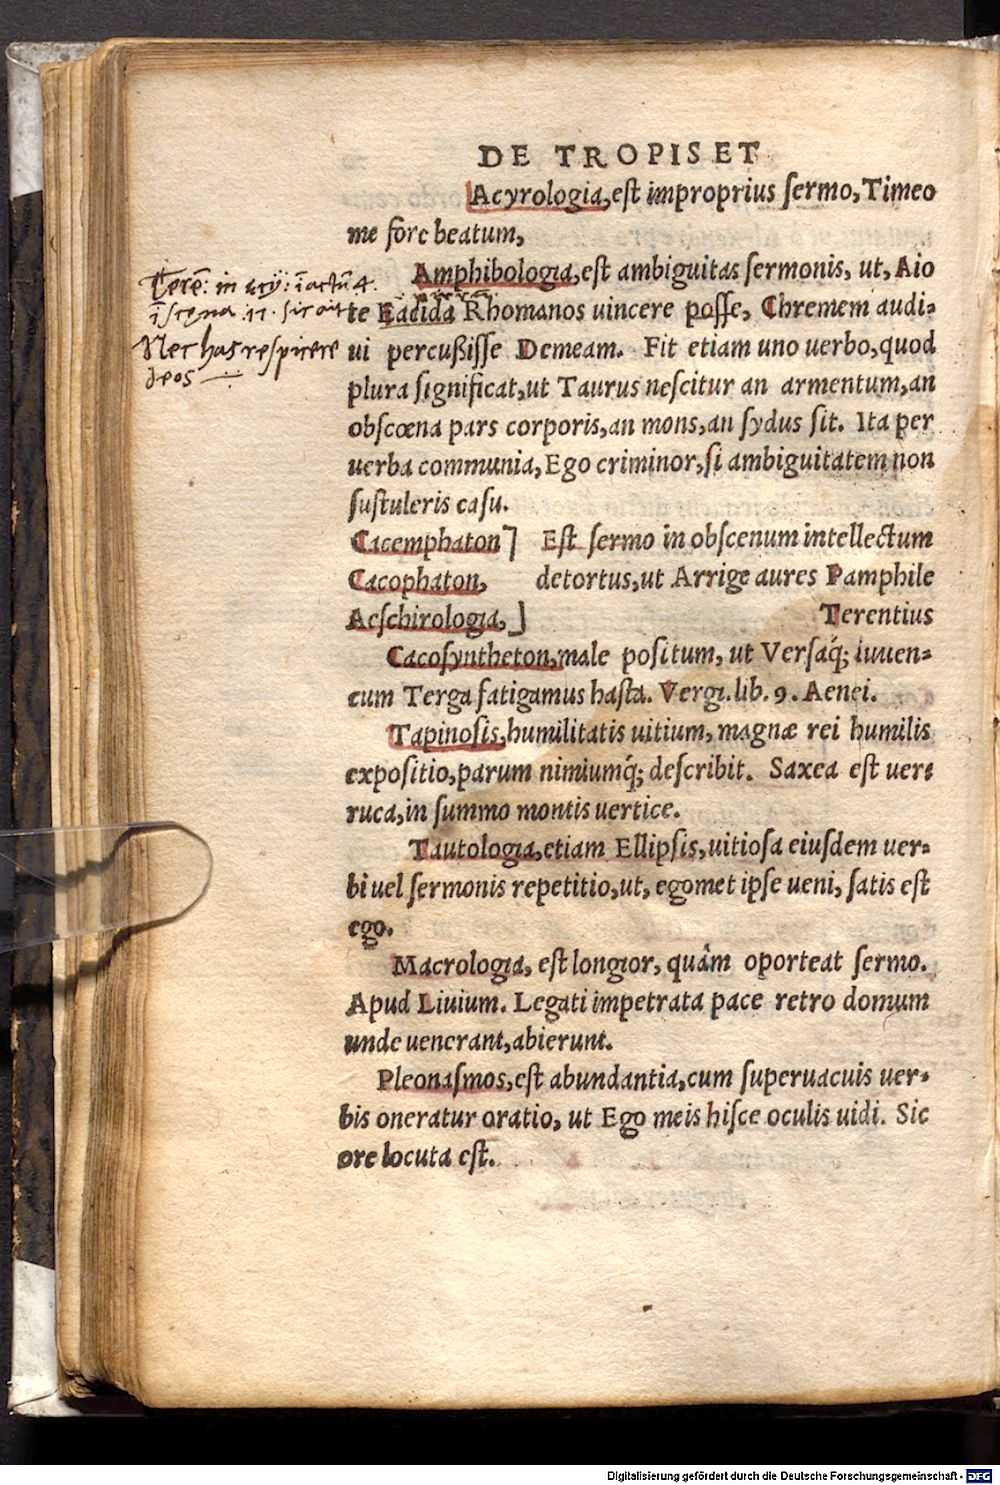 DE TROPIS ET
Acyrologia, est improprius sermo, Timeo
me fore beatum,
Amphibologia, est ambiguitas sermonis, ut, Aio
te Eacida Rhomanos uincere posse, Chremem audi-
ui percußisse Demeam. Fit etiam uno uerbo, quod
plura significat, ut Taurus nescitur an armentum, an
obscœna pars corporis, an mons, an sydus sit. Ita per
uerba communia, Ego criminor, si ambiguitatem non
sustuleris casu.
Cacemphaton ] Est sermo in obscenum intellectum
Cacophaton, detortus, ut Arrige aures Pamphile
Aeschirologia, ] Terentius
Cacosyntheton, male positum, ut Versaq́; iuuen-
cum Terga fatigamus hasta. Vergi. lib. 9. Aenei.
Tapinosis, humilitatis uitium, magnæ rei humilis
expositio, parum nimiumq́; describit. Saxea est uer-
ruca, in summo montis uertice.
Tautologia, etiam Ellipsis, uitiosa eiusdem uer-
bi uel sermonis repetitio, ut, egomet ipse ueni, satis est
ego.
Macrologia, est longior, quâm oporteat sermo.
Apud Liuium. Legati impetrata pace retro domum
unde uenerant, abierunt.
Pleonasmos, est abundantia, cum superuacuis uer-
bis oneratur oratio, ut Ego meis hisce oculis uidi. Sic
ore locuta est.
Nec has respicere
deos
Digitalisierung gefördert durch die Deutsche Forschungsgemeinschaft - DFG